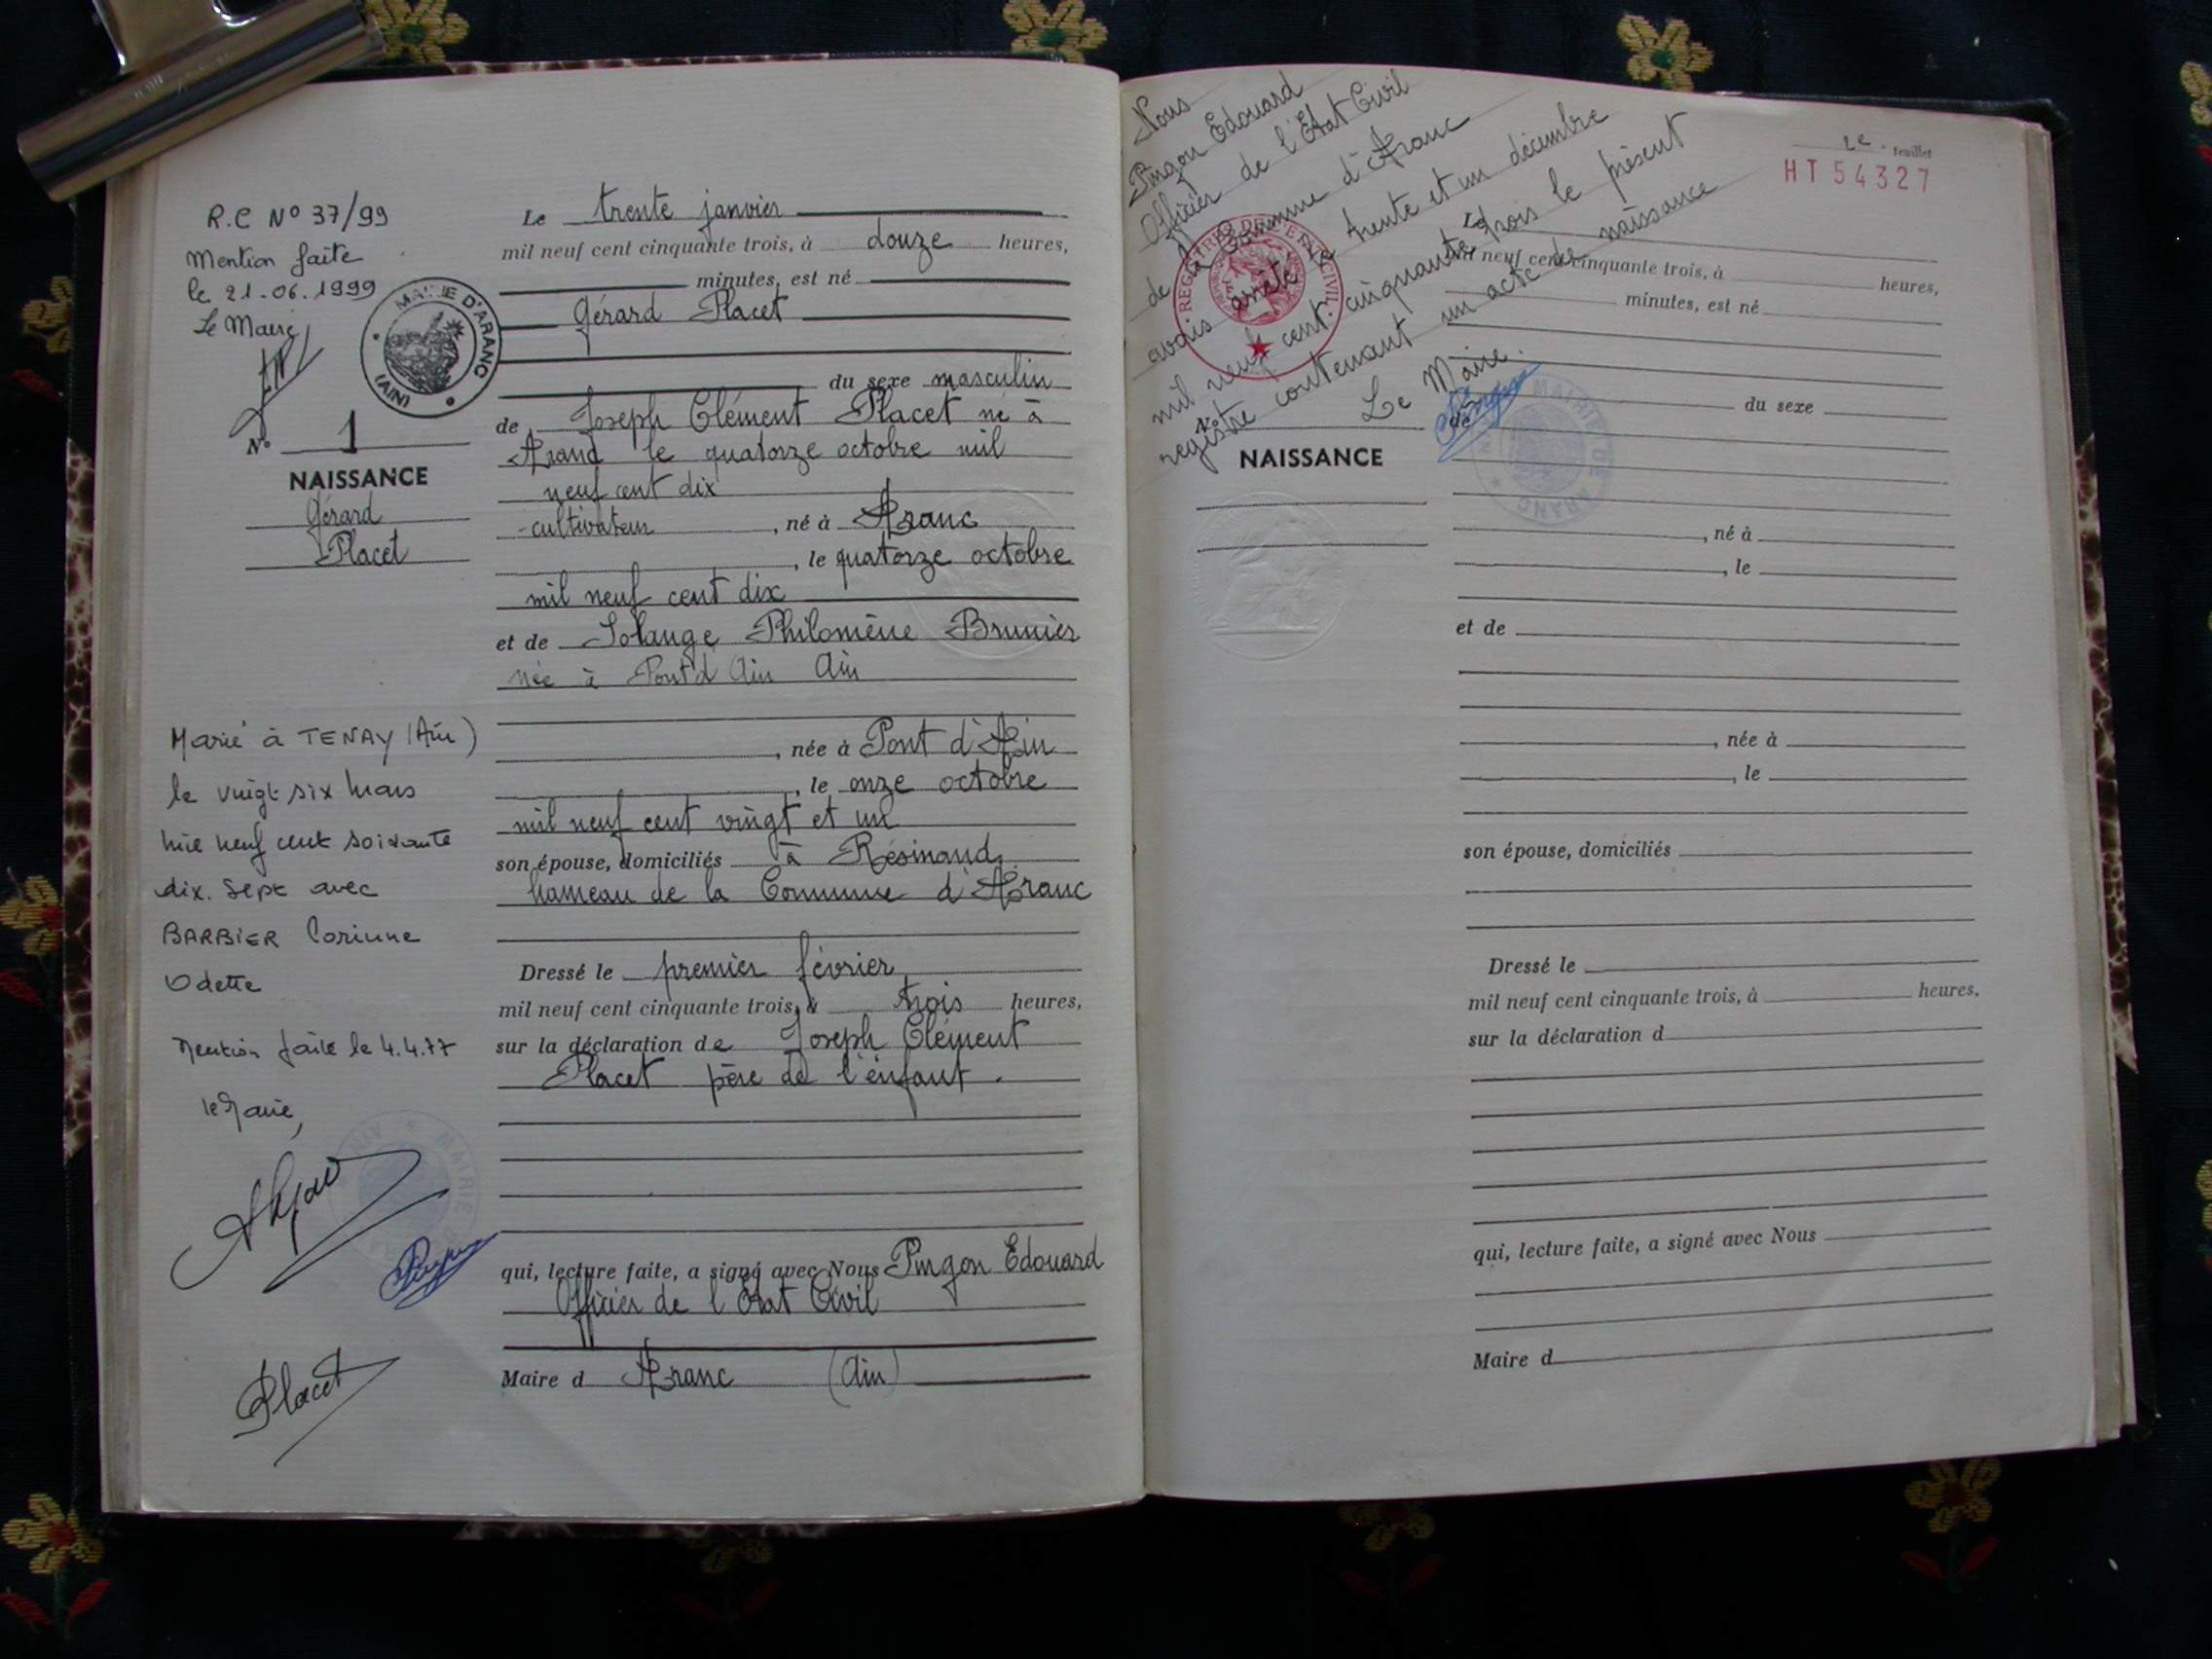 R.C N° 37/99
Mention faite
le 21-06.1999
Le Maire
MAIRIE D'ARANC
(AIN)
N° 1
NAISSANCE
Gérard
Placet
Marié à TENAY (Ain)
le vingt six mars
mil neuf cent soixante
dix. Sept avec
BARBIER Corinne
Odette
Mention faite le 4.4.77
le Maire,
Placet
Le trente janvier
mil neuf cent cinquante trois, à douze heures,
minutes, est né
Gérard Placet
du sexe masculin
de Joseph Clément Placet né à
Arand le quatorze octobre mil
neuf cent dix
cultivateur , né à Aranc
, le quatorze octobre
mil neuf cent dix
et de Solange Philomène Brunier
née à Pont d'Ain Ain
, née à Pont d'Ain
, le onze octobre
mil neuf cent vingt et un
son épouse, domiciliés à Résinand,
hameau de la Commune d'Aranc
Dressé le premier février
mil neuf cent cinquante trois, à trois heures,
sur la déclaration de Joseph Clément
Placet père de l'enfant.
qui, lecture faite, a signé avec Nous Pingon Edouard
Officier de l'Etat Civil
Maire d Aranc (Ain)
Nous
Pingon Edouard
Officier de l'Etat Civil
de la Commune d'Aranc
avons arrêté le trente et un décembre
mil neuf cent cinquante trois le présent
registre contenant un acte de naissance
Le Maire.
REGISTRES DE L'ETAT CIVIL
MAIRIE D'ARANC
2e feuillet
HT 54327
Le
mil neuf cent cinquante trois, à heures,
minutes, est né
du sexe
de
N°
NAISSANCE
, né à
, le
et de
, née à
, le
son épouse, domiciliés
Dressé le
mil neuf cent cinquante trois, à heures,
sur la déclaration d
qui, lecture faite, a signé avec Nous
Maire d